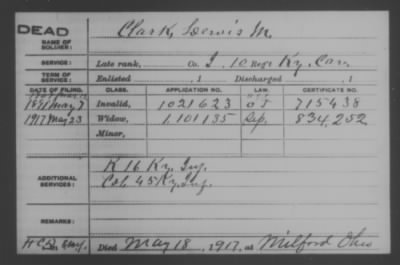 DEAD
NAME OF SOLDIER: Clark, Lewis M.
SERVICE: Late rank, Co. I, 10 Reg't Ky. Cav.
TERM OF SERVICE: Enlisted , 1 Discharged , 1
DATE OF FILING. CLASS. APPLICATION NO. LAW. CERTIFICATE NO.
1891 May 7 Invalid, 1021623 715438
1917 May 23 Widow, 1.101135 834,252
Minor,
ADDITIONAL SERVICES: K 16 Ky. Inf.
45 Ky. Inf.
REMARKS:
Died May 18, 1917, at Milford Ohio